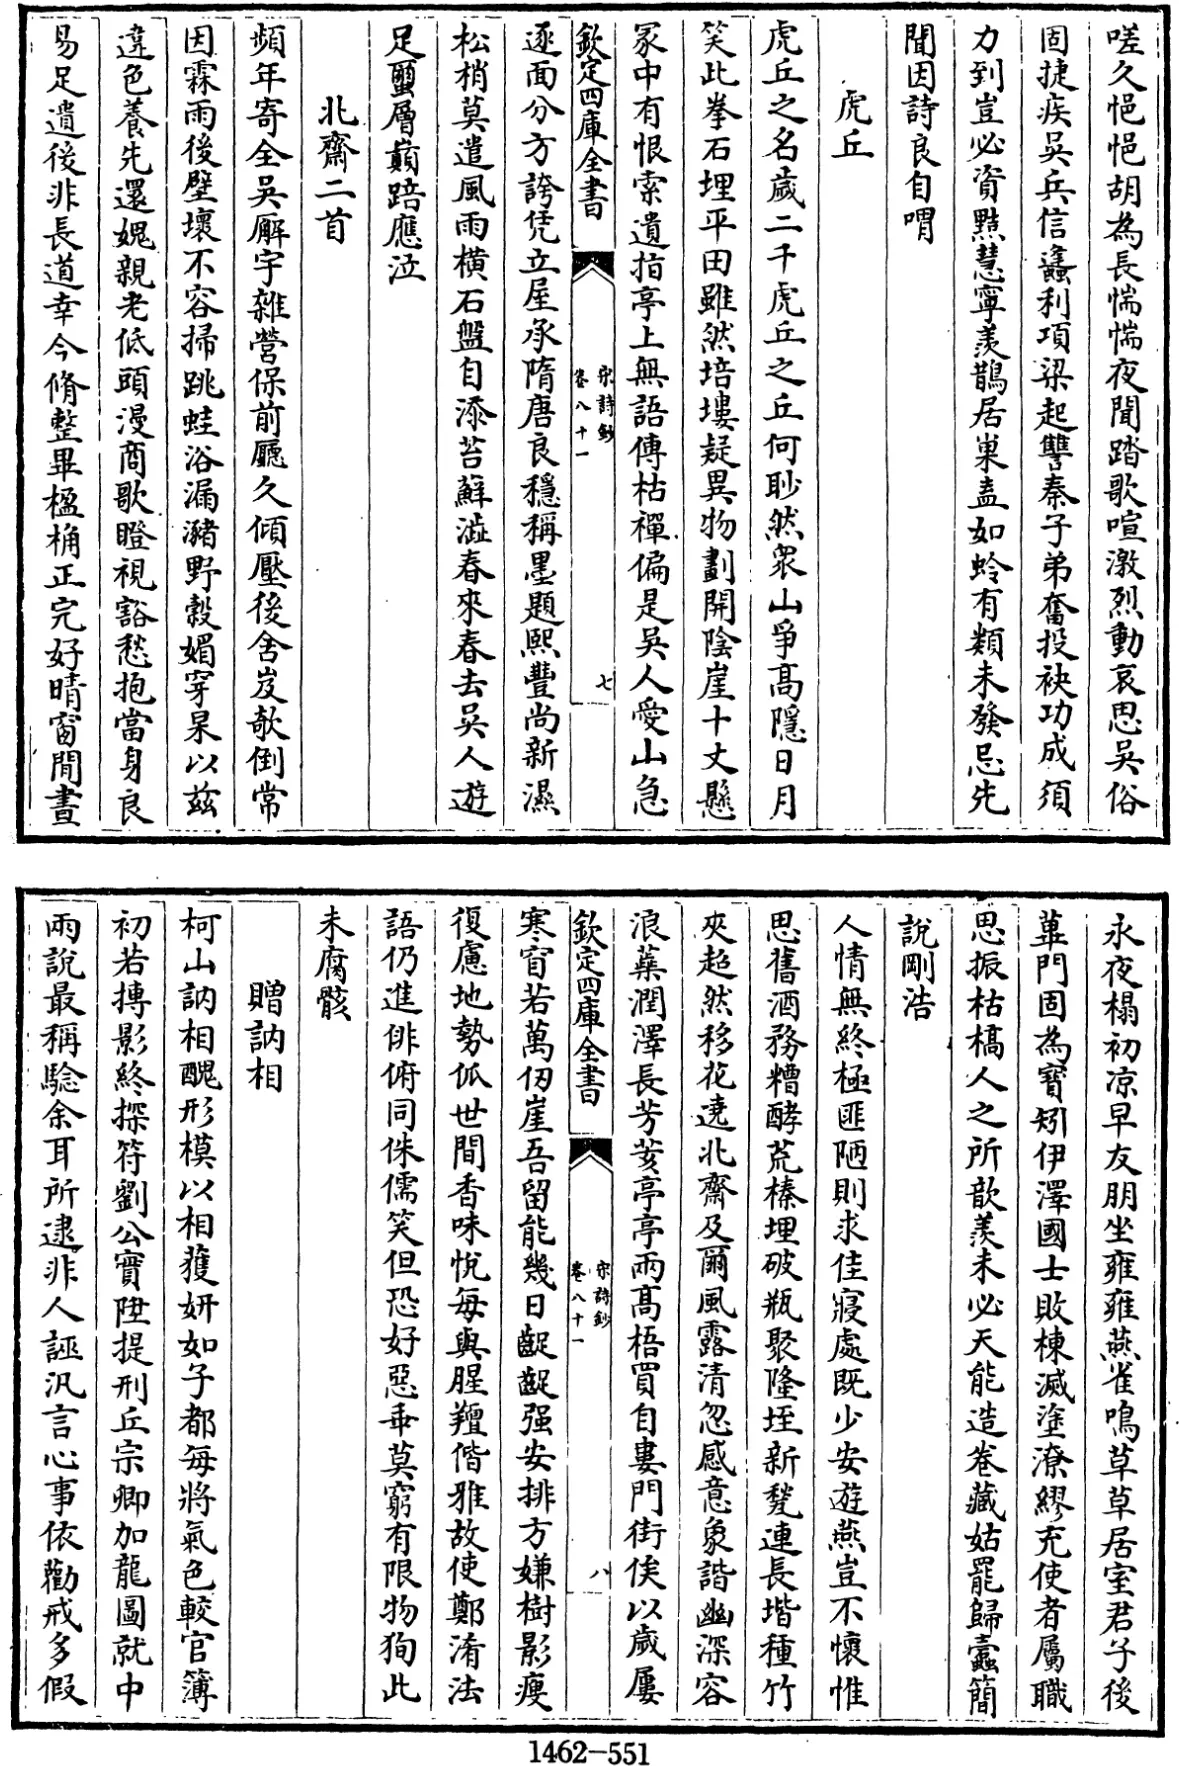 嗟久悒悒胡為長惴惴夜聞踏歌喧激烈動哀思吳俗
固捷疾吳兵信蠭利項梁起讐秦子弟奮投袂功成須
力到豈必資黠慧寧羨鵲居巢盍如蛉有類未發忌先
聞因詩良自喟
虎丘
虎丘之名歲二千虎丘之丘何眇然衆山爭髙隱日月
笑此拳石埋平田雖然培塿疑異物劃開陰崖十丈懸
冢中有恨索遺指亭上無語傳枯禪偏是吳人愛山急
欽定四庫全書
宋詩鈔
卷八十一
七
逐面分方誇凭立屋承隋唐良穩稱墨題熙豐尚新濕
松梢莫遣風雨橫石盤自添苔蘚澁春來春去吳人遊
足蠒層巔踣應泣
北齋二首
頻年寄全吳廨宇雜營保前廳久傾壓後舍岌欹倒常
因霖雨後壁壞不容掃跳蛙浴漏瀦野縠媚穿杲以兹
違色養先還媿親老低頭漫商歌瞪視豁愁抱當身良
易足遺後非長道幸今脩整畢楹桷正完好晴窗閒晝
永夜榻初凉早友朋坐雍雍燕雀鳴草草居室君子後
蓽門固為寳矧伊澤國士敗棟減塗潦繆充使者屬職
思振枯槁人之所歆羨未必天能造卷藏姑罷歸蠹簡
說剛浩
人情無終極匪陋則求佳寢處既少安遊燕豈不懷惟
思舊酒務糟酵荒榛埋破瓶聚隆垤新甃連長堦種竹
夾超然移花遶北齋及爾風露清忽感意象諧幽深容
浪蘂潤澤長芳荄亭亭兩髙梧買自婁門街俟以歲屢
欽定四庫全書
宋詩鈔
卷八十一
八
寒窅若萬仞崖吾留能幾日齪齪强安排方嫌樹影瘦
復慮地勢低世間香味悅每與腥羶偕雅故使鄭淆法
語仍進俳俯同侏儒笑但恐好惡乖莫窮有限物狥此
未腐骸
贈訥相
柯山訥相醜形模以相獲妍如子都每將氣色較官簿
初若搏影終探符劉公實陞提刑丘宗卿加龍圖就中
兩說最稱驗余耳所逮非人誣汎言心事依勸戒多假
1462-551